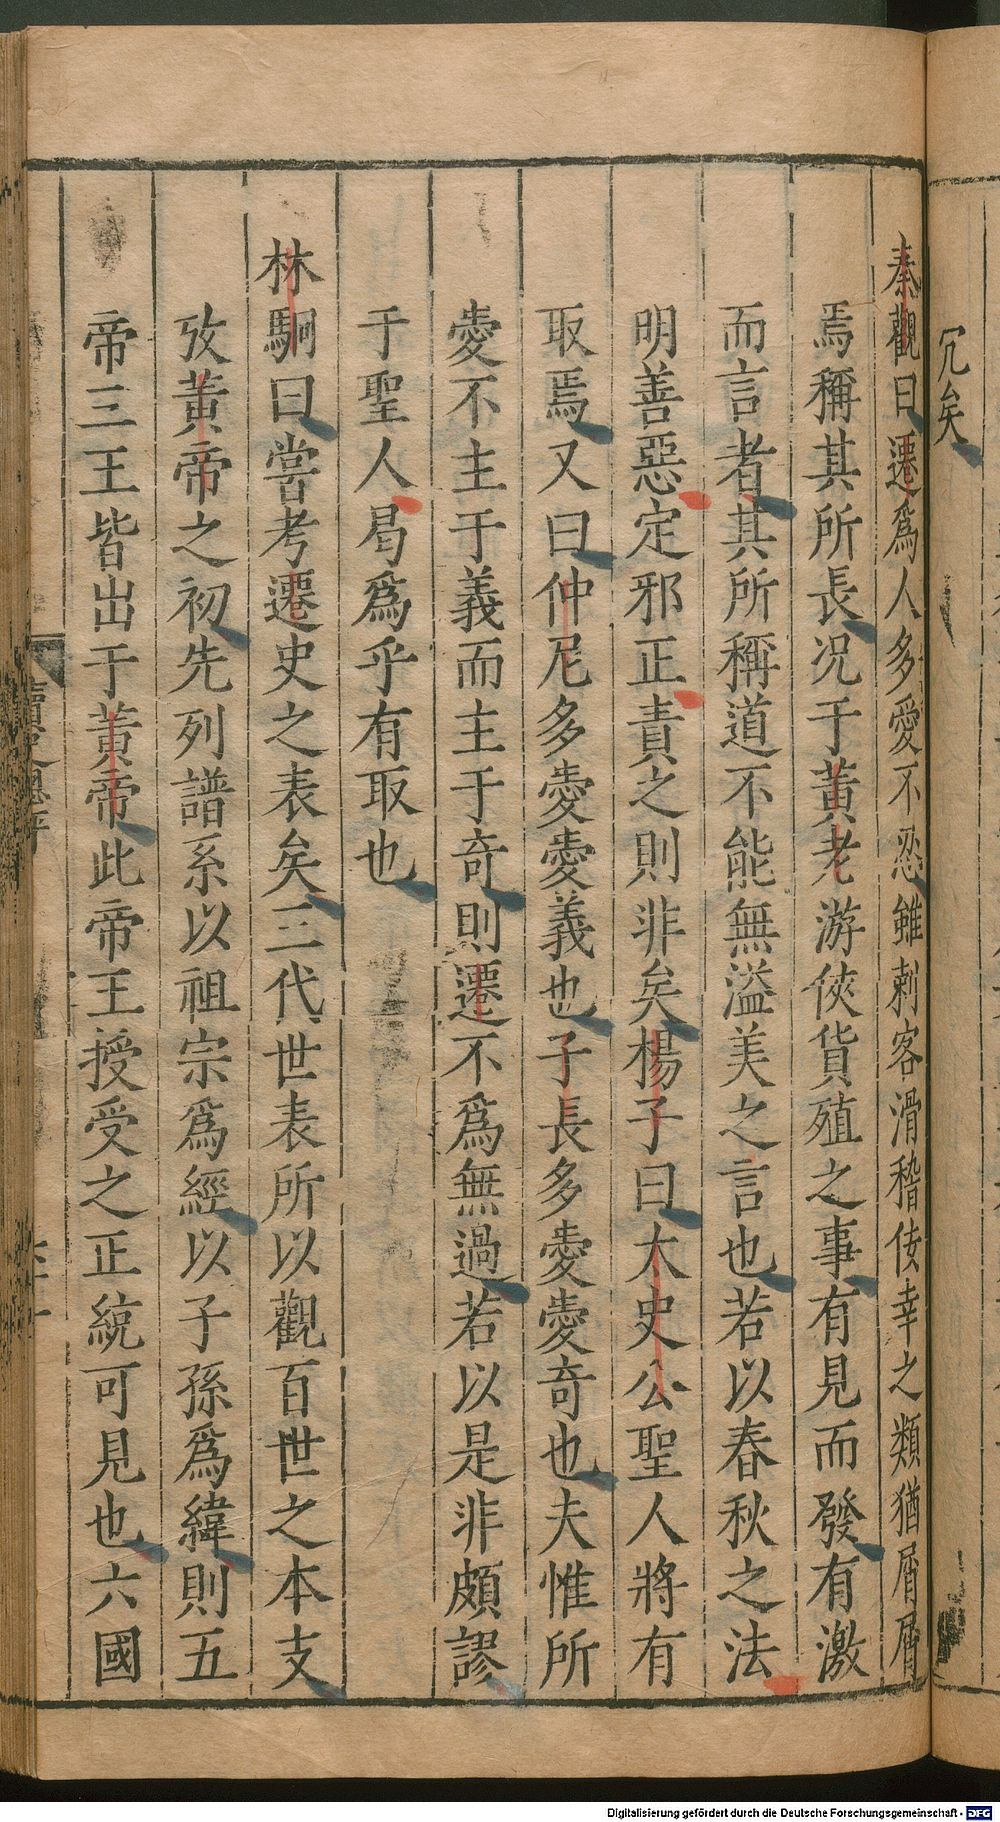 冗矣
秦觀曰遷爲人多愛不忍雖刺客滑稽佞幸之類猶屑屑
焉稱其所長况于黃老游俠貨殖之事有見而發有激
而言者其所稱道不能無溢美之言也若以春秋之法
明善惡定邪正責之則非矣楊子曰太史公聖人將有
取焉又曰仲尼多愛愛義也子長多愛愛奇也夫惟所
愛不主于義而主于奇則遷不爲無過若以是非頗謬
于聖人曷爲乎有取也
林駉曰嘗考遷史之表矣三代世表所以觀百世之本支
攷黃帝之初先列譜系以祖宗爲經以子孫爲緯則五
帝三王皆出于黃帝此帝王授受之正統可見也六國
Digitalisierung gefördert durch die Deutsche Forschungsgemeinschaft - DFG